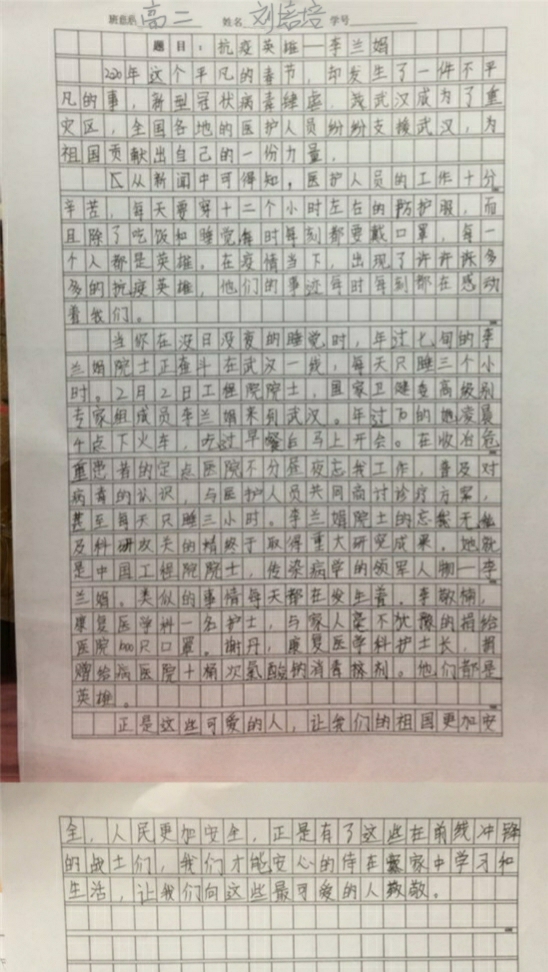 班级 高二 姓名 刘培培 学号
题目：抗疫英雄—李兰娟
2020年这个平凡的春节，却发生了一件不平
凡的事，新型冠状病毒肆虐，武汉成为了重
灾区，全国各地的医护人员纷纷支援武汉，为
祖国贡献出自己的一份力量。
从新闻中可得知，医护人员的工作十分
辛苦，每天要穿十二个小时左右的防护服，而
且除了吃饭和睡觉每时每刻都要戴口罩，每一
个人都是英雄。在疫情当下，出现了许许多多
多的抗疫英雄，他们的事迹每时每刻都在感动
着我们。
当你在没日没夜的睡觉时，年过七旬的李
兰娟院士正奋斗在武汉一线，每天只睡三个小
时。2月2日工程院院士，国家卫健委高级别
专家组成员李兰娟来到武汉。年过70的她凌晨
4点下火车，吃过早餐后马上开会。在收治危
重患者的定点医院不分昼夜忘我工作，普及对
病毒的认识，与医护人员共同商讨诊疗方案，
甚至每天只睡三小时。李兰娟院士的忘我无私
及科研攻关的精终于取得重大研究成果。她就
是中国工程院院士，传染病学的领军人物—李
兰娟。类似的事情每天都在发生着。李敬楠，
康复医学科一名护士，与家人毫不犹豫的捐给
医院1000只口罩。谢丹，康复医学科护士长，捐
赠给病医院十桶次氯酸钠消毒擦剂。他们都是
英雄。
正是这些可爱的人，让我们的祖国更加安
全，人民更加安全，正是有了这些在前线冲锋
的战士们，我们才能安心的待在家中学习和
生活，让我们向这些最可爱的人致敬。